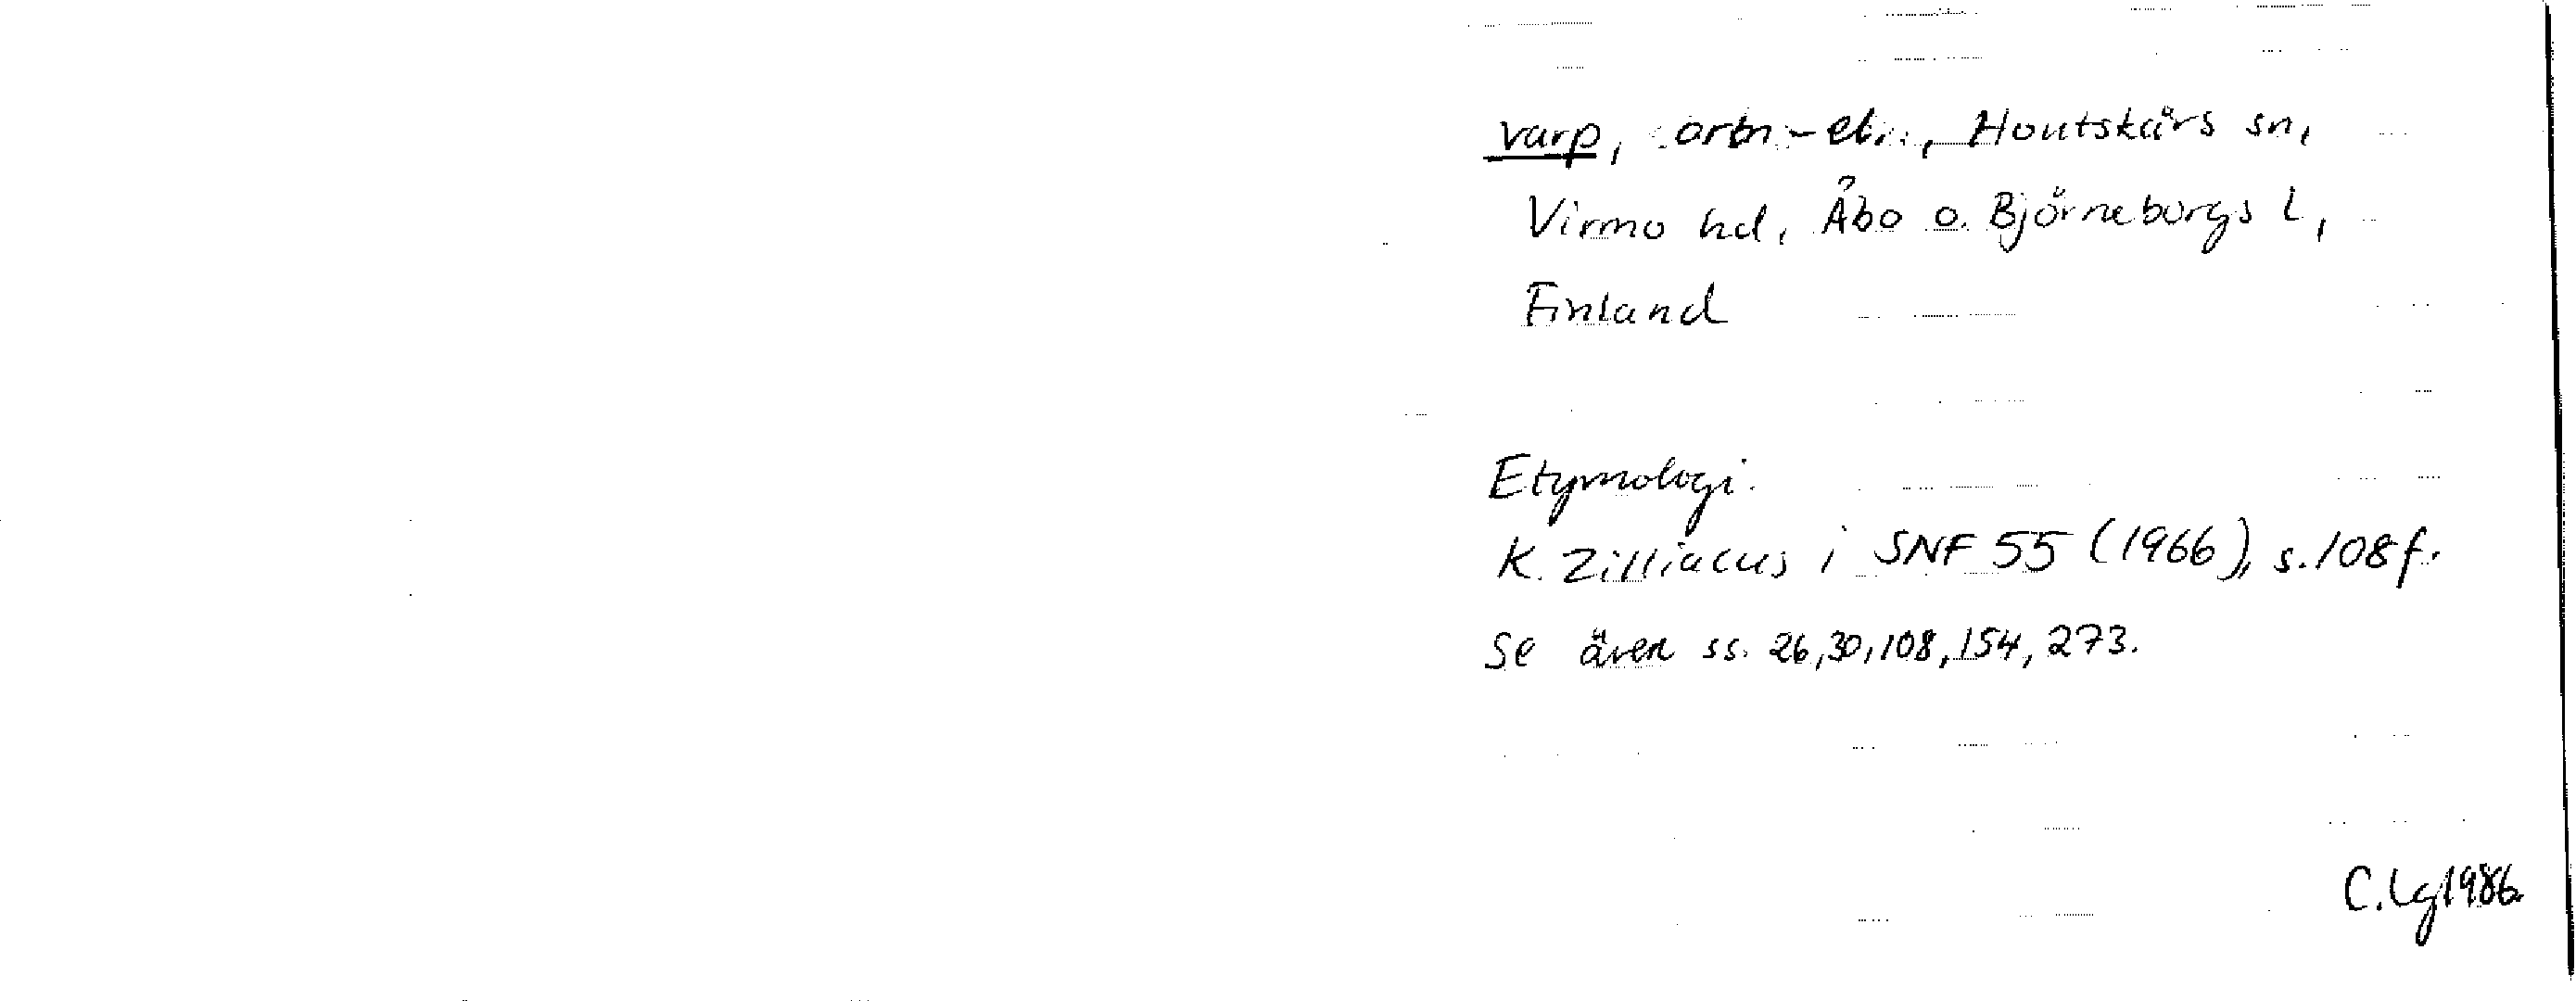 varp, ortn-el., Houtskärs sn,
Virmo hd, Åbo o. Björneborgs L,
Finland
Etymologi.
K. Zilliacus i SNF 55 (1966), s. 108 f.
Se även ss. 26, 30, 108, 154, 273.
C. Lg 1986